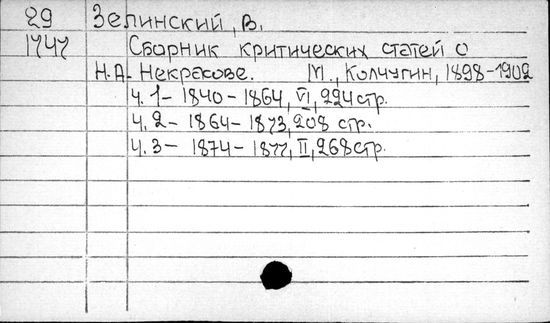 29 Зелинский, В.
1747 Сборник критических статей о
Н.А. Некрасове. М., Колчугин, 1898-1902
ч. 1 - 1840 - 1864, VI, 224 стр.
ч. 2 - 1864 - 1873, 208 стр.
ч. 3 - 1874 - 1877, II, 268 стр.